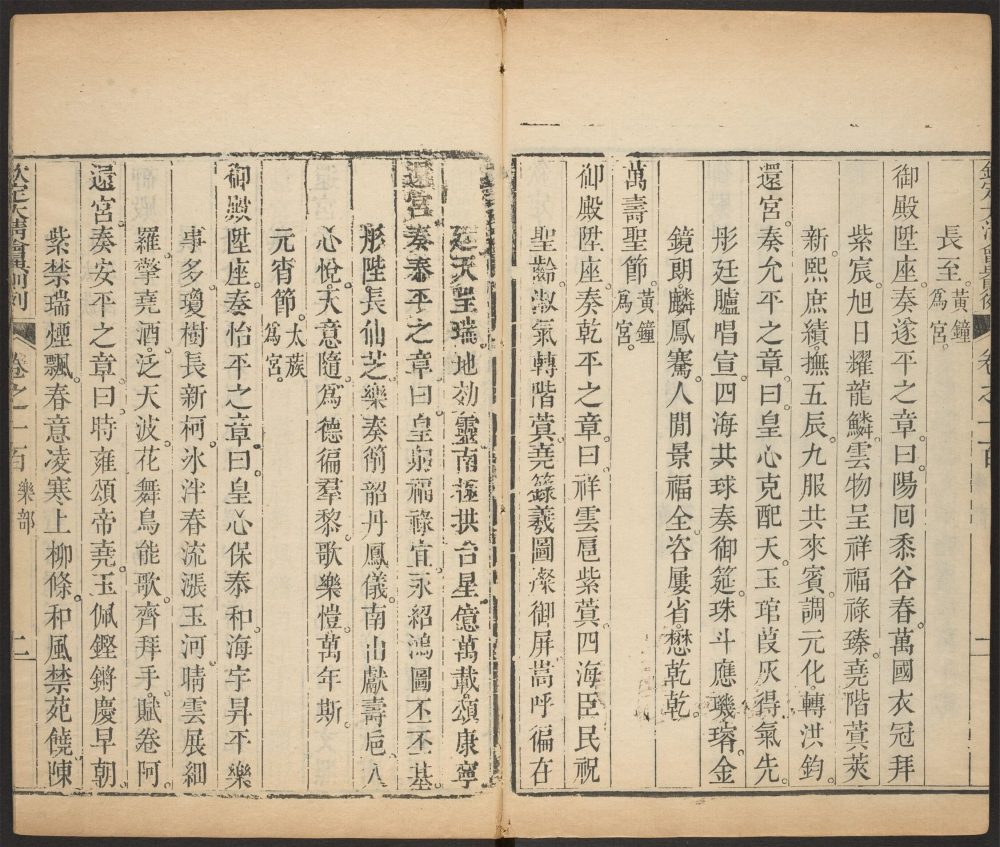 長至。黃鐘爲宮。
御殿陞座。奏遂平之章。曰。陽囘黍谷春。萬國衣冠拜
紫宸。旭日耀龍鱗。雲物呈祥福祿臻。堯階蓂莢
新。熙庶績撫五辰。九服共來賓。調元化轉洪鈞。
還宮。奏允平之章。曰。皇心克配天。玉琯葭灰得氣先。
彤廷臚唱宣。四海共球奏御筵。珠斗應璣璿。金
鏡朗。麟鳳騫。人閒景福全。咨屢省。懋乾乾。
萬壽聖節。黃鐘爲宮。
御殿陞座。奏乾平之章。曰。祥雲扈紫蓂。四海臣民祝
聖齡。淑氣轉階蓂。堯籙羲圖燦御屏。嵩呼徧在
廷。天呈瑞。地効靈。南極拱台星。億萬載。頌康寧。
還宮。奏泰平之章。曰。皇躬福祿宜。永紹鴻圖丕丕基。
彤陛長仙芝。樂奏簫韶丹鳳儀。南山獻壽巵。八
心悅。天意隨。爲德徧羣黎。歌樂愷。萬年斯。
元宵節。太蔟爲宮。
御殿陞座。奏怡平之章。曰。皇心保泰和。海宇昇平樂
事多。瓊樹長新柯。氷泮春流漲玉河。晴雲展細
羅。擎堯酒。泛天波。花舞鳥能歌。齊拜手。賦卷阿。
還宮。奏安平之章。曰。時雍頌帝堯。玉佩鏗鏘慶早朝。
紫禁瑞煙飄。春意凌寒上柳條。和風禁苑饒。陳
欽定大清會典則例 卷之一百 樂部 二